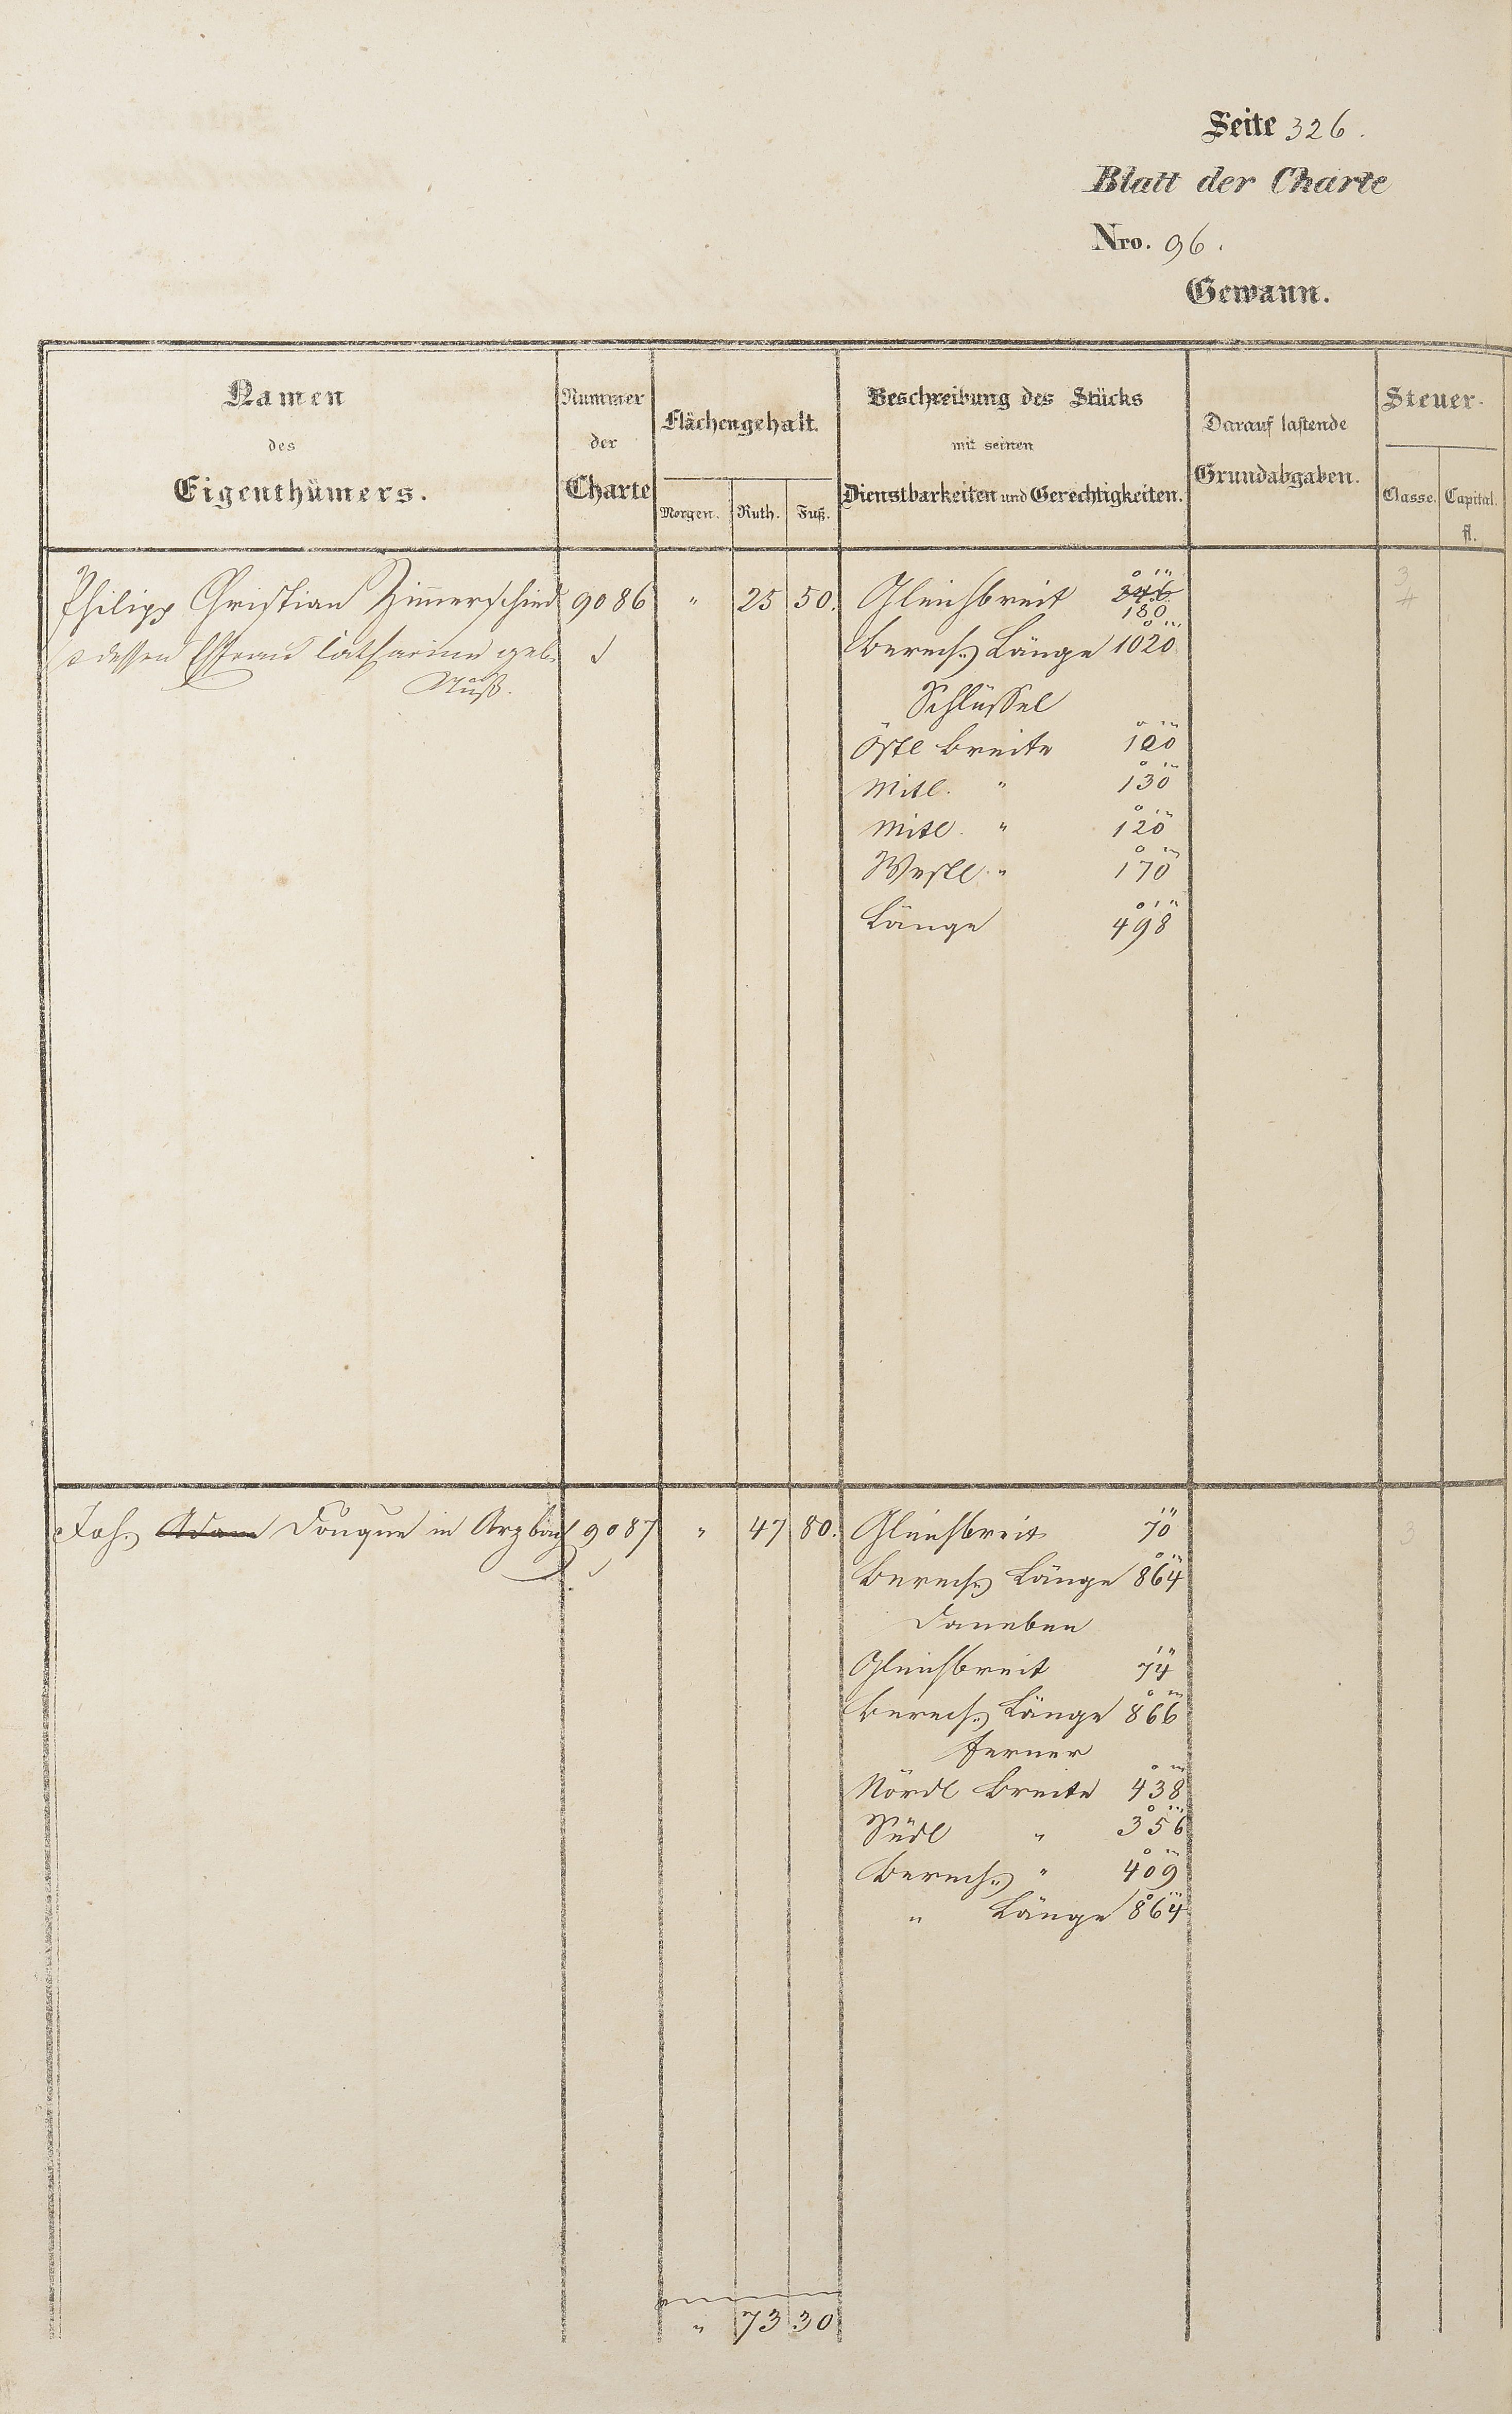 Seite 326.
Blatt der Charte
Nro. 96.
Gewann.
Namen
des
Eigenthümers.
Nummer
der
Charte
Flächengehalt.
Morgen. Ruth. Fuß.
Beschreibung des Stücks
mit seinen
Dienstbarkeiten und Gerechtigkeiten.
Darauf lastende
Grundabgaben.
Steuer-
Classe. Capital.
fl.
Philipp Christian Zimerschied 9086 " 25 50. Gleichbreit 246 3
180 4
dessen Ehfrau Catharine geb. Berech. Länge 1020
Nuß.
Schlüssel
Östl Breite 100
Mitl. " 130
Mitl. " 120
Westl. " 170
Länge 498
Joh. Adam Donque in Arzbach 9087 " 47 80. Gleichbreit 70 3
Berech. Länge 864
Daneben
Gleichbreit 74
Berech. Länge 866
Ferner
Nördl Breite 438
Südl " 356
Berech. " 409
" Länge 864
" 73 30